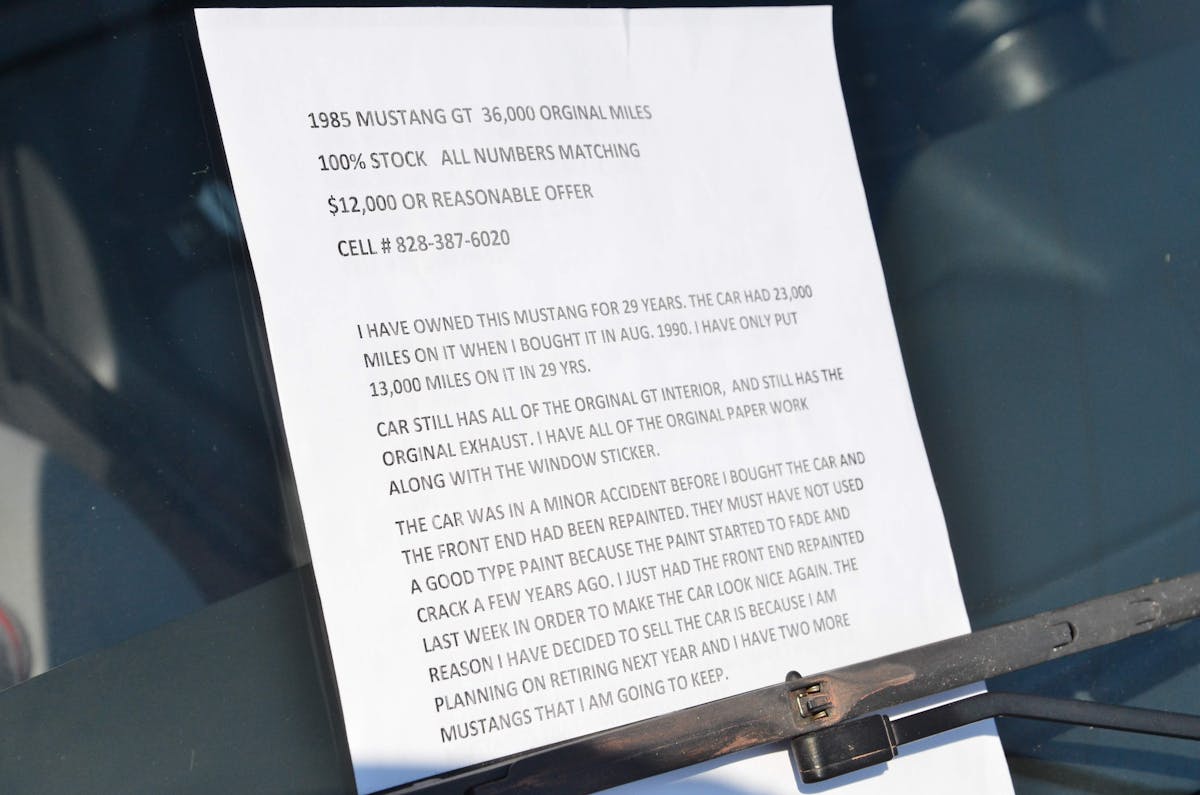 1985 MUSTANG GT 36,000 ORGINAL MILES
100% STOCK ALL NUMBERS MATCHING
$12,000 OR REASONABLE OFFER
CELL # 828-387-6020
I HAVE OWNED THIS MUSTANG FOR 29 YEARS. THE CAR HAD 23,000
MILES ON IT WHEN I BOUGHT IT IN AUG. 1990. I HAVE ONLY PUT
13,000 MILES ON IT IN 29 YRS.
CAR STILL HAS ALL OF THE ORGINAL GT INTERIOR, AND STILL HAS THE
ORGINAL EXHAUST. I HAVE ALL OF THE ORGINAL PAPER WORK
ALONG WITH THE WINDOW STICKER.
THE CAR WAS IN A MINOR ACCIDENT BEFORE I BOUGHT THE CAR AND
THE FRONT END HAD BEEN REPAINTED. THEY MUST HAVE NOT USED
A GOOD TYPE PAINT BECAUSE THE PAINT STARTED TO FADE AND
CRACK A FEW YEARS AGO. I JUST HAD THE FRONT END REPAINTED
LAST WEEK IN ORDER TO MAKE THE CAR LOOK NICE AGAIN. THE
REASON I HAVE DECIDED TO SELL THE CAR IS BECAUSE I AM
PLANNING ON RETIRING NEXT YEAR AND I HAVE TWO MORE
MUSTANGS THAT I AM GOING TO KEEP.